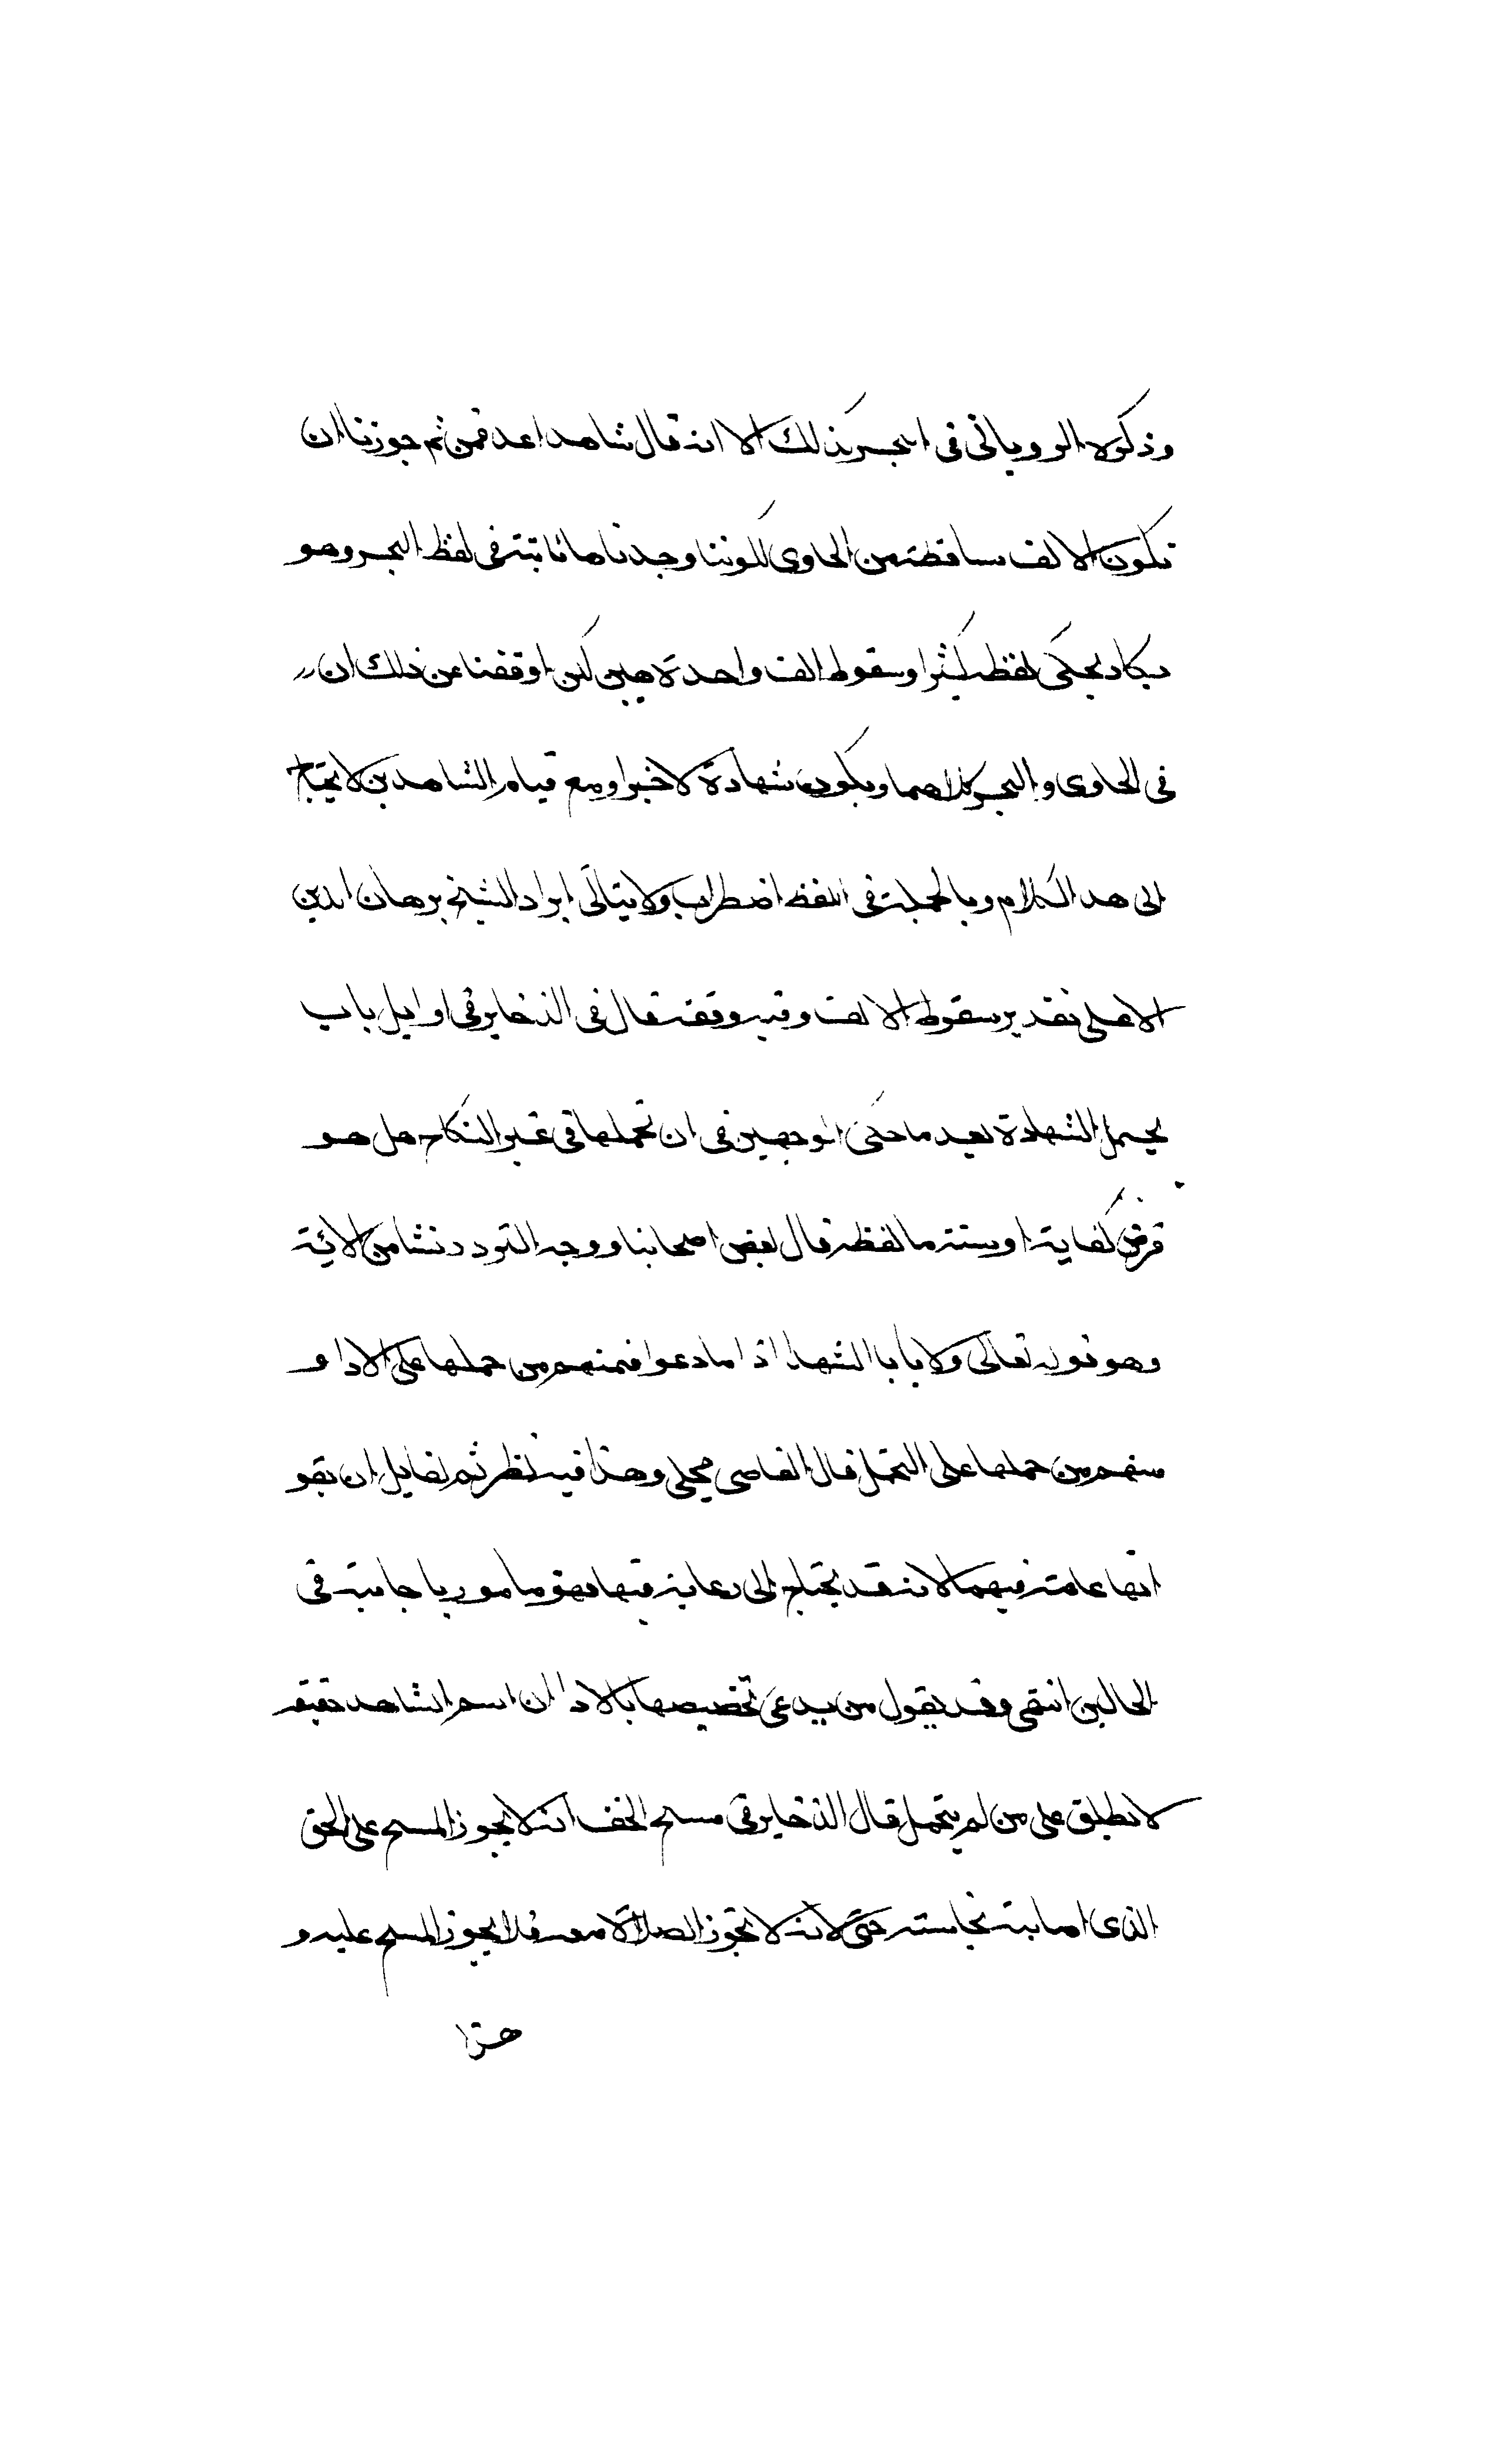 وذكره الروياني في البحر كذلك الا انه قال شاهدا عدل فمن ثم جوزنا ان
تكون الالف ساقطة من الحاوي لكوننا وجدناها ثابتة في لفظ البحر وهو
يكاد يحكي لفظه كثيرا وسقوط الف واحدة هين لكن اوقفنا عن ذلك ان
في الحاوي والبحر كلاهما ويكون شهادة لا خبرا ومع قيام الشاهدين لا يحتاج
الى هذا الكلام وبالجملة في اللفظ اضطراب ولا يتاتى ايراد الشيخ برهان الدين
الا على تقدير سقوط الالف وفيه وقفة قال في الذخاير في اوايل باب
تحمل الشهادة بعد ما حكى الوجهين في ان تحملها في غير النكاح هل هو
فرض كفاية او سنة ما لفظه قال بعض اصحابنا ووجه التردد نشا من الاية
وهو قوله تعالى ولا يابا الشهدا اذا ما دعوا فمنهم من حملها على الادا و
منهم من حملها على التحمل قال القاضي مجلي وهذا فيه نظر ثم لقايل ان يقو
انها عامة فيهما لانه قد يحتاج الى رعاية فيها فهو مامور باجابته في
الحالين انتهى وقد يقول من يدعي تخصيصها بالادا ان اسم الشاهد حقيقة
لا يطلق على من لم يتحمل قال الذخاير في مسح الخف انه لا يجوز المسح على الخف
الذي اصابته نجاسته حتى لانه لا تجوز الصلاة معه فلا يجوز المسح عليه و
هذا